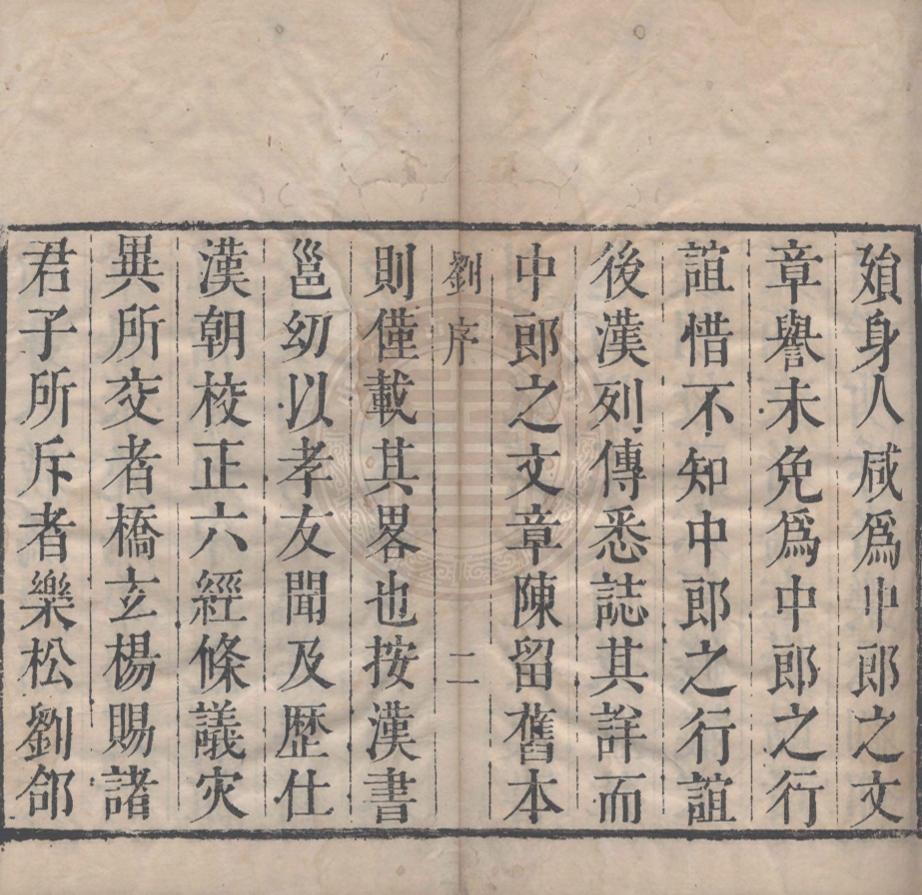 殞身人咸為中郎之文
章譽未免為中郎之行
誼惜不知中郎之行誼
後漢列傳悉誌其詳而
中郎之文章陳留舊本
劉序 二
則僅載其畧也按漢書
邕幼以孝友聞及歷仕
漢朝校正六經條議灾
異所交者橋玄楊賜諸
君子所斥者樂松劉郃